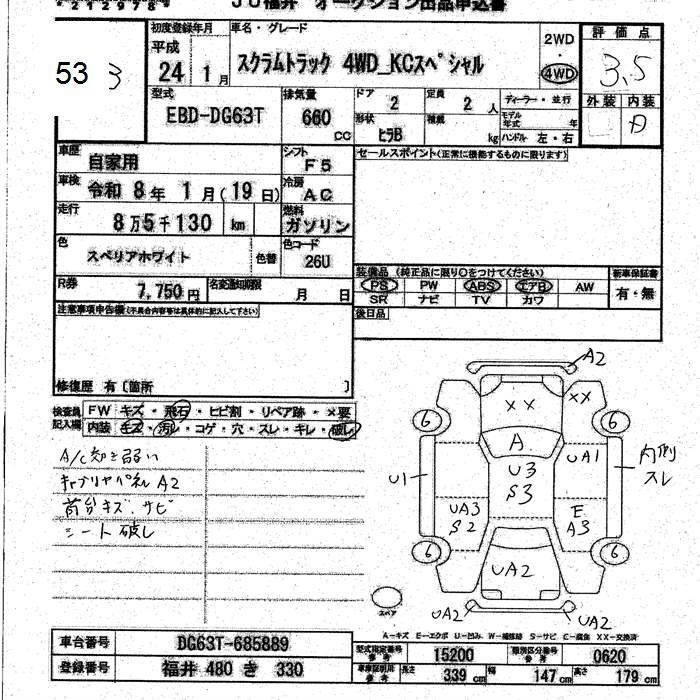 JU福井 オークション出品申込書
53 3
初度登録年月
平成
24 1月
車名・グレード
スクラムトラック 4WD_KCスペシャル
2WD
・
4WD
評価点
3.5
外装 内装
A
型式
EBD-DG63T
排気量
660
CC
ドア
2
定員
2 人
形状
ヒラB
積載
kg
ディーラー・並行
モデル年式 年
ハンドル 左・右
車歴
自家用
シフト
F5
車検
令和 8年 1月(19日)
冷房
AC
走行
8万5千130 km
燃料
ガソリン
色
スペリアホワイト
色替
色コード
26U
R券
7,750円
名変通知期限
月 日
セールスポイント(正常に機能するものに限ります)
装備品 (純正品に限り○をつけてください)
新車保証書
PS PW ABS エアB AW
SR ナビ TV カワ
有・無
後日品
注意事項申告欄(不具合内容等は具体的に記入して下さい)
修復歴 有〔箇所 〕
検査員記入欄
FW キズ・飛石・ヒビ割・リペア跡・×要
内装 キズ・汚レ・コゲ・穴・スレ・キレ・破レ
A/C効き弱い
キャブリヤパネルA2
荷台キズ、サビ
シート破レ
A2
XX
XX
6
6
A
UA1
内側
スレ
U1
U3
S3
UA3
S2
E
A3
6
6
UA2
UA2
UA2
スペア
A-キズ E-エクボ U-凹み W-補修跡 S-サビ C-腐食 XX-交換済
車台番号 DG63T-685889
登録番号 福井 480 き 330
型式指定番号
参考
15200
類別区分番号
参考
0620
車庫証明用
参考
長さ 339 cm
幅 147 cm
高さ 179 cm